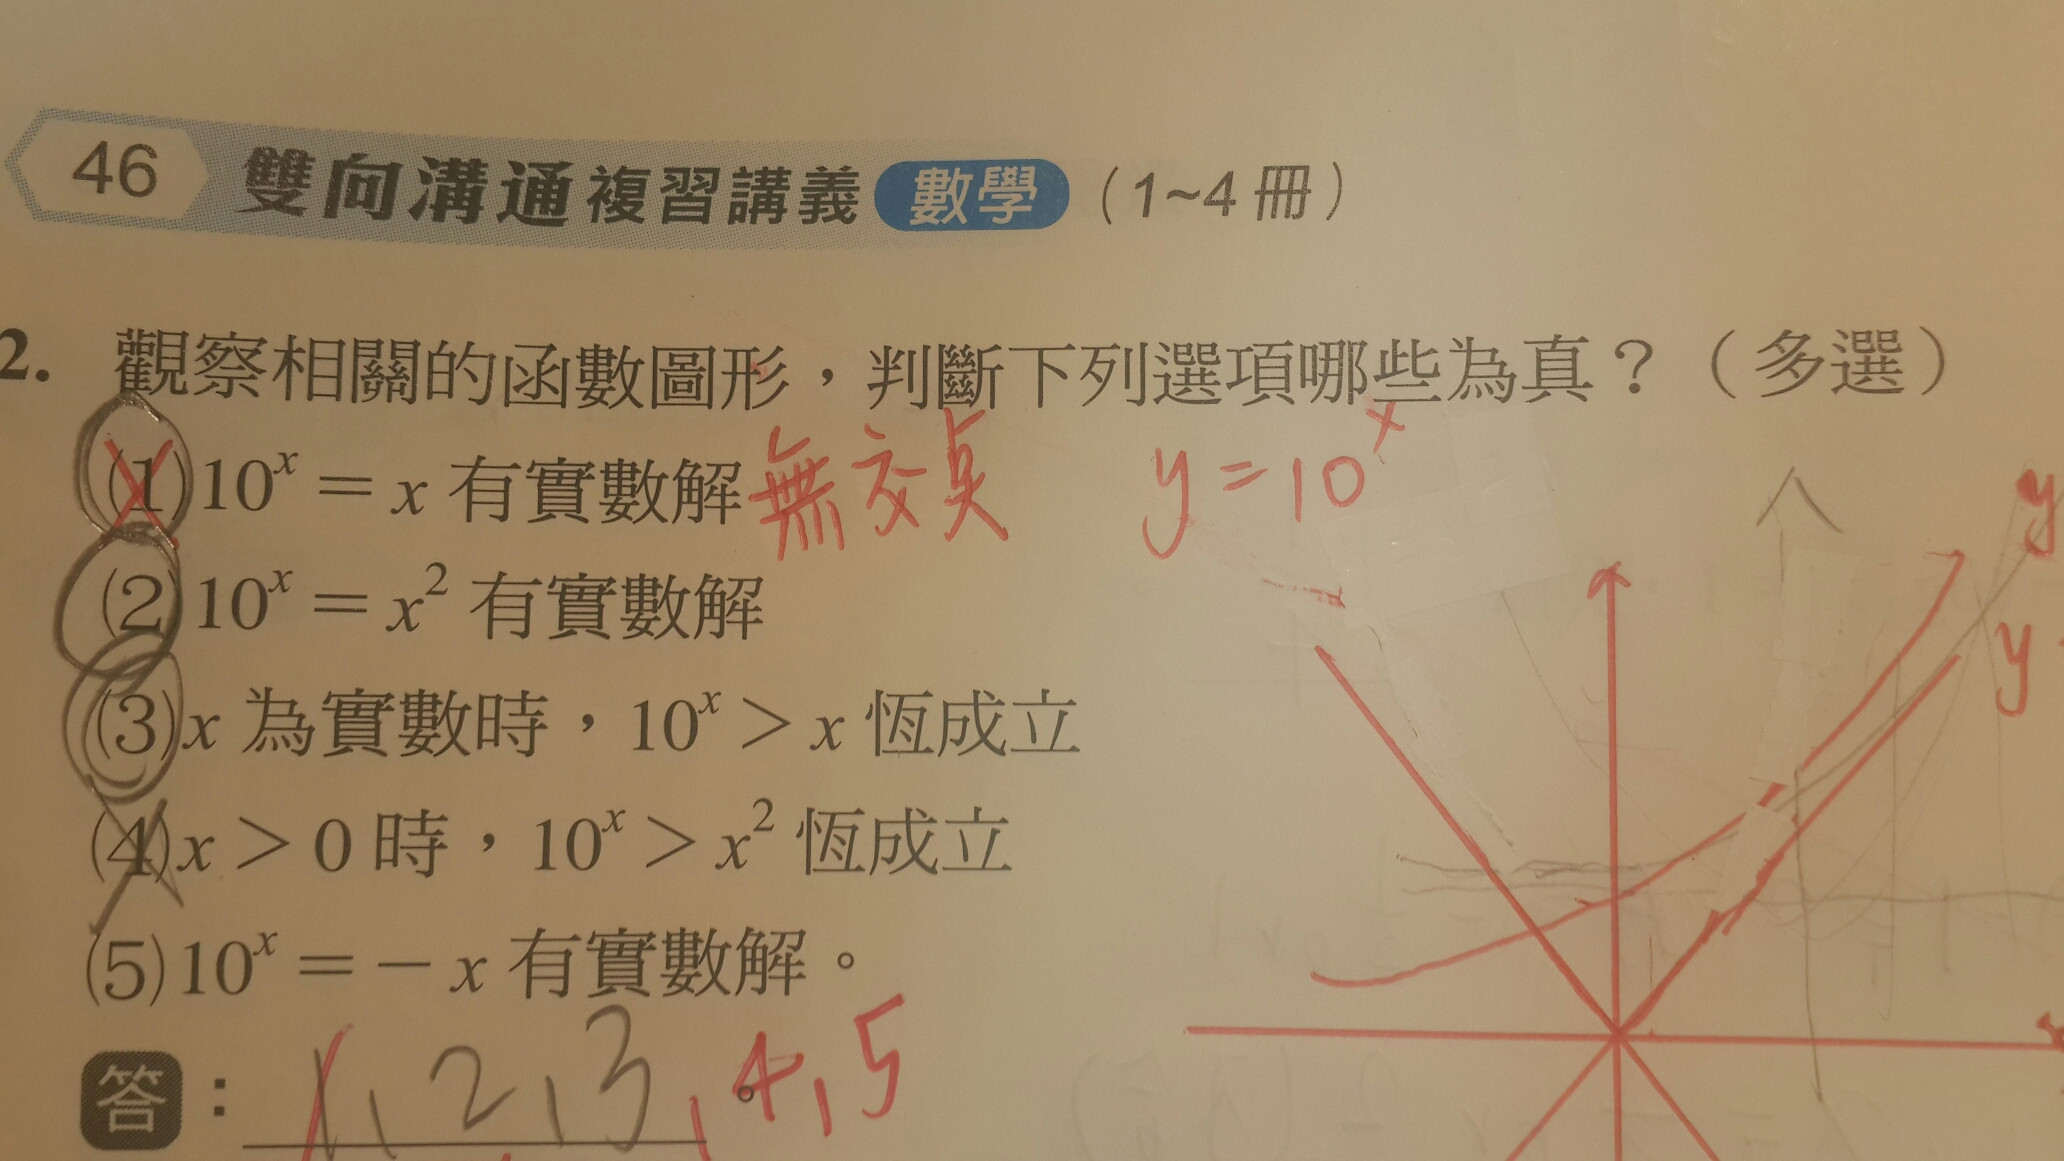 46 雙向溝通複習講義 數學 (1~4冊)
2. 觀察相關的函數圖形,判斷下列選項哪些為真?(多選)
(1)10^x = x 有實數解 無交點 y = 10^x
y
(2)10^x = x^2 有實數解
y
(3)x 為實數時,10^x > x 恆成立
(4)x > 0 時,10^x > x^2 恆成立
(5)10^x = - x 有實數解。
答:1,2,3,4,5